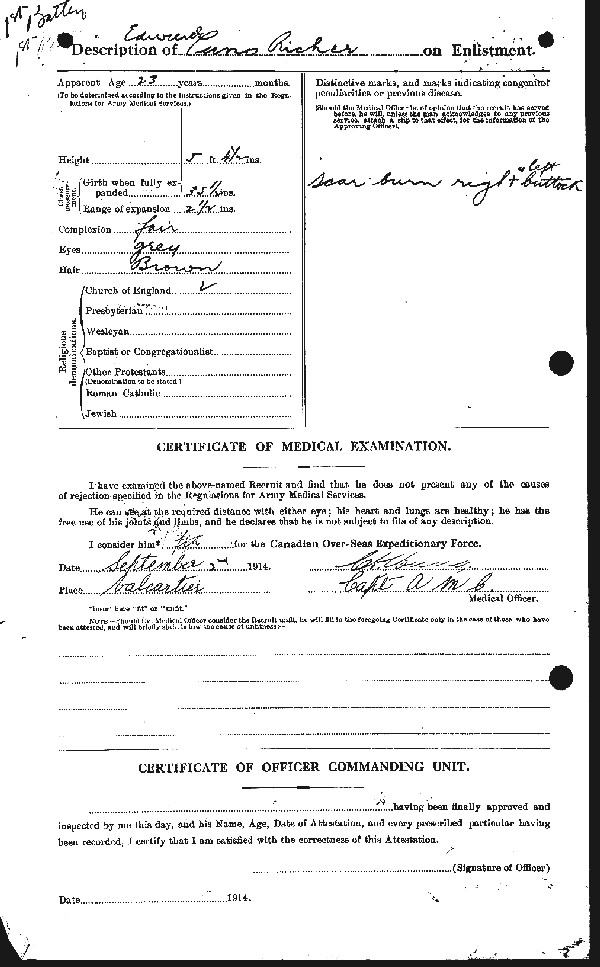 1st Batten
1st
Edwund
Description of Enno Richer on Enlistment.
Apparent Age 23 years months.
(To be determined according to the instructions given in the Regulations for Army Medical Services.)
Height 5 ft ins.
Chest measurement.
Girth when fully expanded ins.
Range of expansion 2 1/2 ins.
Complexion fair
Eyes grey
Hair Brown
Religious denominations.
Church of England ✓
Presbyterian
Wesleyan
Baptist or Congregationalist
Other Protestants
(Denomination to be stated.)
Roman Catholic
Jewish
Distinctive marks, and marks indicating congenital
peculiarities or previous disease.
(Should the Medical Officer be of opinion that the recruit has served
before, he will, unless the man acknowledges to any previous
service, attach a slip to that effect, for the information of the
Approving Officer).
left
scar burn right buttock
CERTIFICATE OF MEDICAL EXAMINATION.
I have examined the above-named Recruit and find that he does not present any of the causes
of rejection specified in the Regulations for Army Medical Services.
He can see at the required distance with either eye; his heart and lungs are healthy; he has the
free use of his joints and limbs, and he declares that he is not subject to fits of any description.
I consider him* fit for the Canadian Over-Seas Expeditionary Force.
Date September 2nd 1914.
Place Valcartier
Capt A M C
Medical Officer.
*Insert here "fit" or "unfit."
NOTE.—Should the Medical Officer consider the Recruit unfit, he will fill in the foregoing Certificate only in the case of those who have
been attested, and will briefly state below the cause of unfitness:—
CERTIFICATE OF OFFICER COMMANDING UNIT.
having been finally approved and
inspected by me this day, and his Name, Age, Date of Attestation, and every prescribed particular having
been recorded, I certify that I am satisfied with the correctness of this Attestation.
(Signature of Officer)
Date 1914.